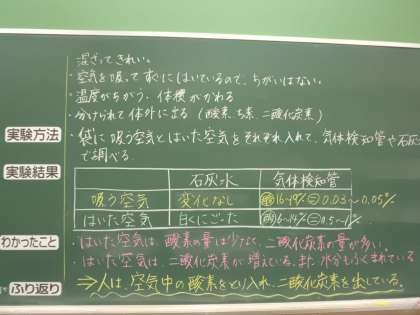 混ざってきれい。
・空気を吸ってすぐにはいているので、ちがいはない。
・温度がちがう 体積がかわる
・分けられて体外に出る(酸素、ちっ素、二酸化炭素)
実験方法 ・袋に吸う空気とはいた空気をそれぞれ入れて、気体検知管や石灰
で調べる。
実験結果
石灰水 気体検知管
吸う空気 変化なし 酸16~19% 二0.03~0.05%
はいた空気 白くにごった 酸16~14% 二0.5~1%
わかったこと ・はいた空気は、酸素の量は少なく、二酸化炭素の量が多い。
・はいた空気は、二酸化炭素が増えている。また、水分もふくまれている
ふり返り ⇒人は、空気中の酸素をとり入れ、二酸化炭素を出している。